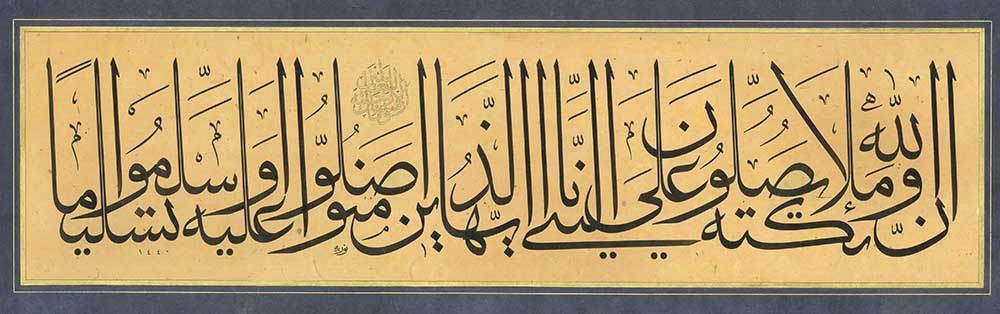 ان الله وملائكته يصلون على النبي يا ايها الذين امنوا صلوا عليه وسلموا تسليما
١٤٤٠